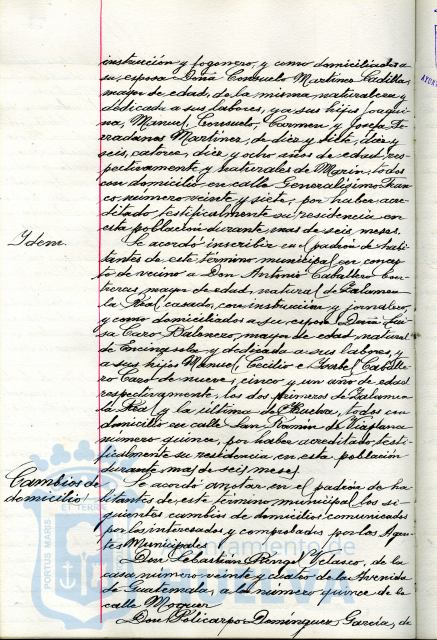 instrucción y fogonero, y como domiciliados a
su esposa Doña Consuelo Martinez Padilla,
mayor de edad, de la misma naturaleza y
dedicada a sus labores, y a sus hijos Joaqui-
na, Manuel, Consuelo, Carmen y Josefa
Martinez, de diez y siete, diez y
seis, catorce, diez y ocho años de edad, res-
pectivamente, y naturales de Marin, todos
con domicilio en calle Generalísimo Fran-
co, número veinte y siete, por haber acre-
ditado testificalmente su residencia en
esta población durante mas de seis meses.
Idem.
Se acordó inscribir en el padrón de habi-
tantes de este término municipal, en concep-
to de vecino a Don Antonio Caballero Con-
treras, mayor de edad, natural de Zalamea
la Real, casado, con instrucción y jornalero,
y como domiciliados a su esposa Doña Lui-
sa Caro Palencio, mayor de edad, natural
de Encinasola y dedicada a sus labores, y
a sus hijos Manuel, Cecilio e Isabel Caballe-
ro Caro de nueve, cinco y un año de edad
respectivamente, los dos primeros de Zalamea
la Real y la última de Huelva, todos con
domicilio en calle San Ramón de
número quince, por haber acreditado testi-
ficalmente su residencia en esta población
durante mas de seis meses.
Cambios de
domicilio.
Se acordó anotar en el padrón de ha-
bitantes de este término municipal los si-
guientes cambios de domicilios comunicados
por los interesados y comprobados por los Agen-
tes Municipales
Don Sebastián Rengel Velasco, de la
casa número veinte y cuatro de la Avenida
de Guatemala, a la número quince de la
calle Moguer
Don Policarpo Domínguez García, de
PORTUS MARIS
ET TERRÆ
Ayuntamiento de
HUELVA